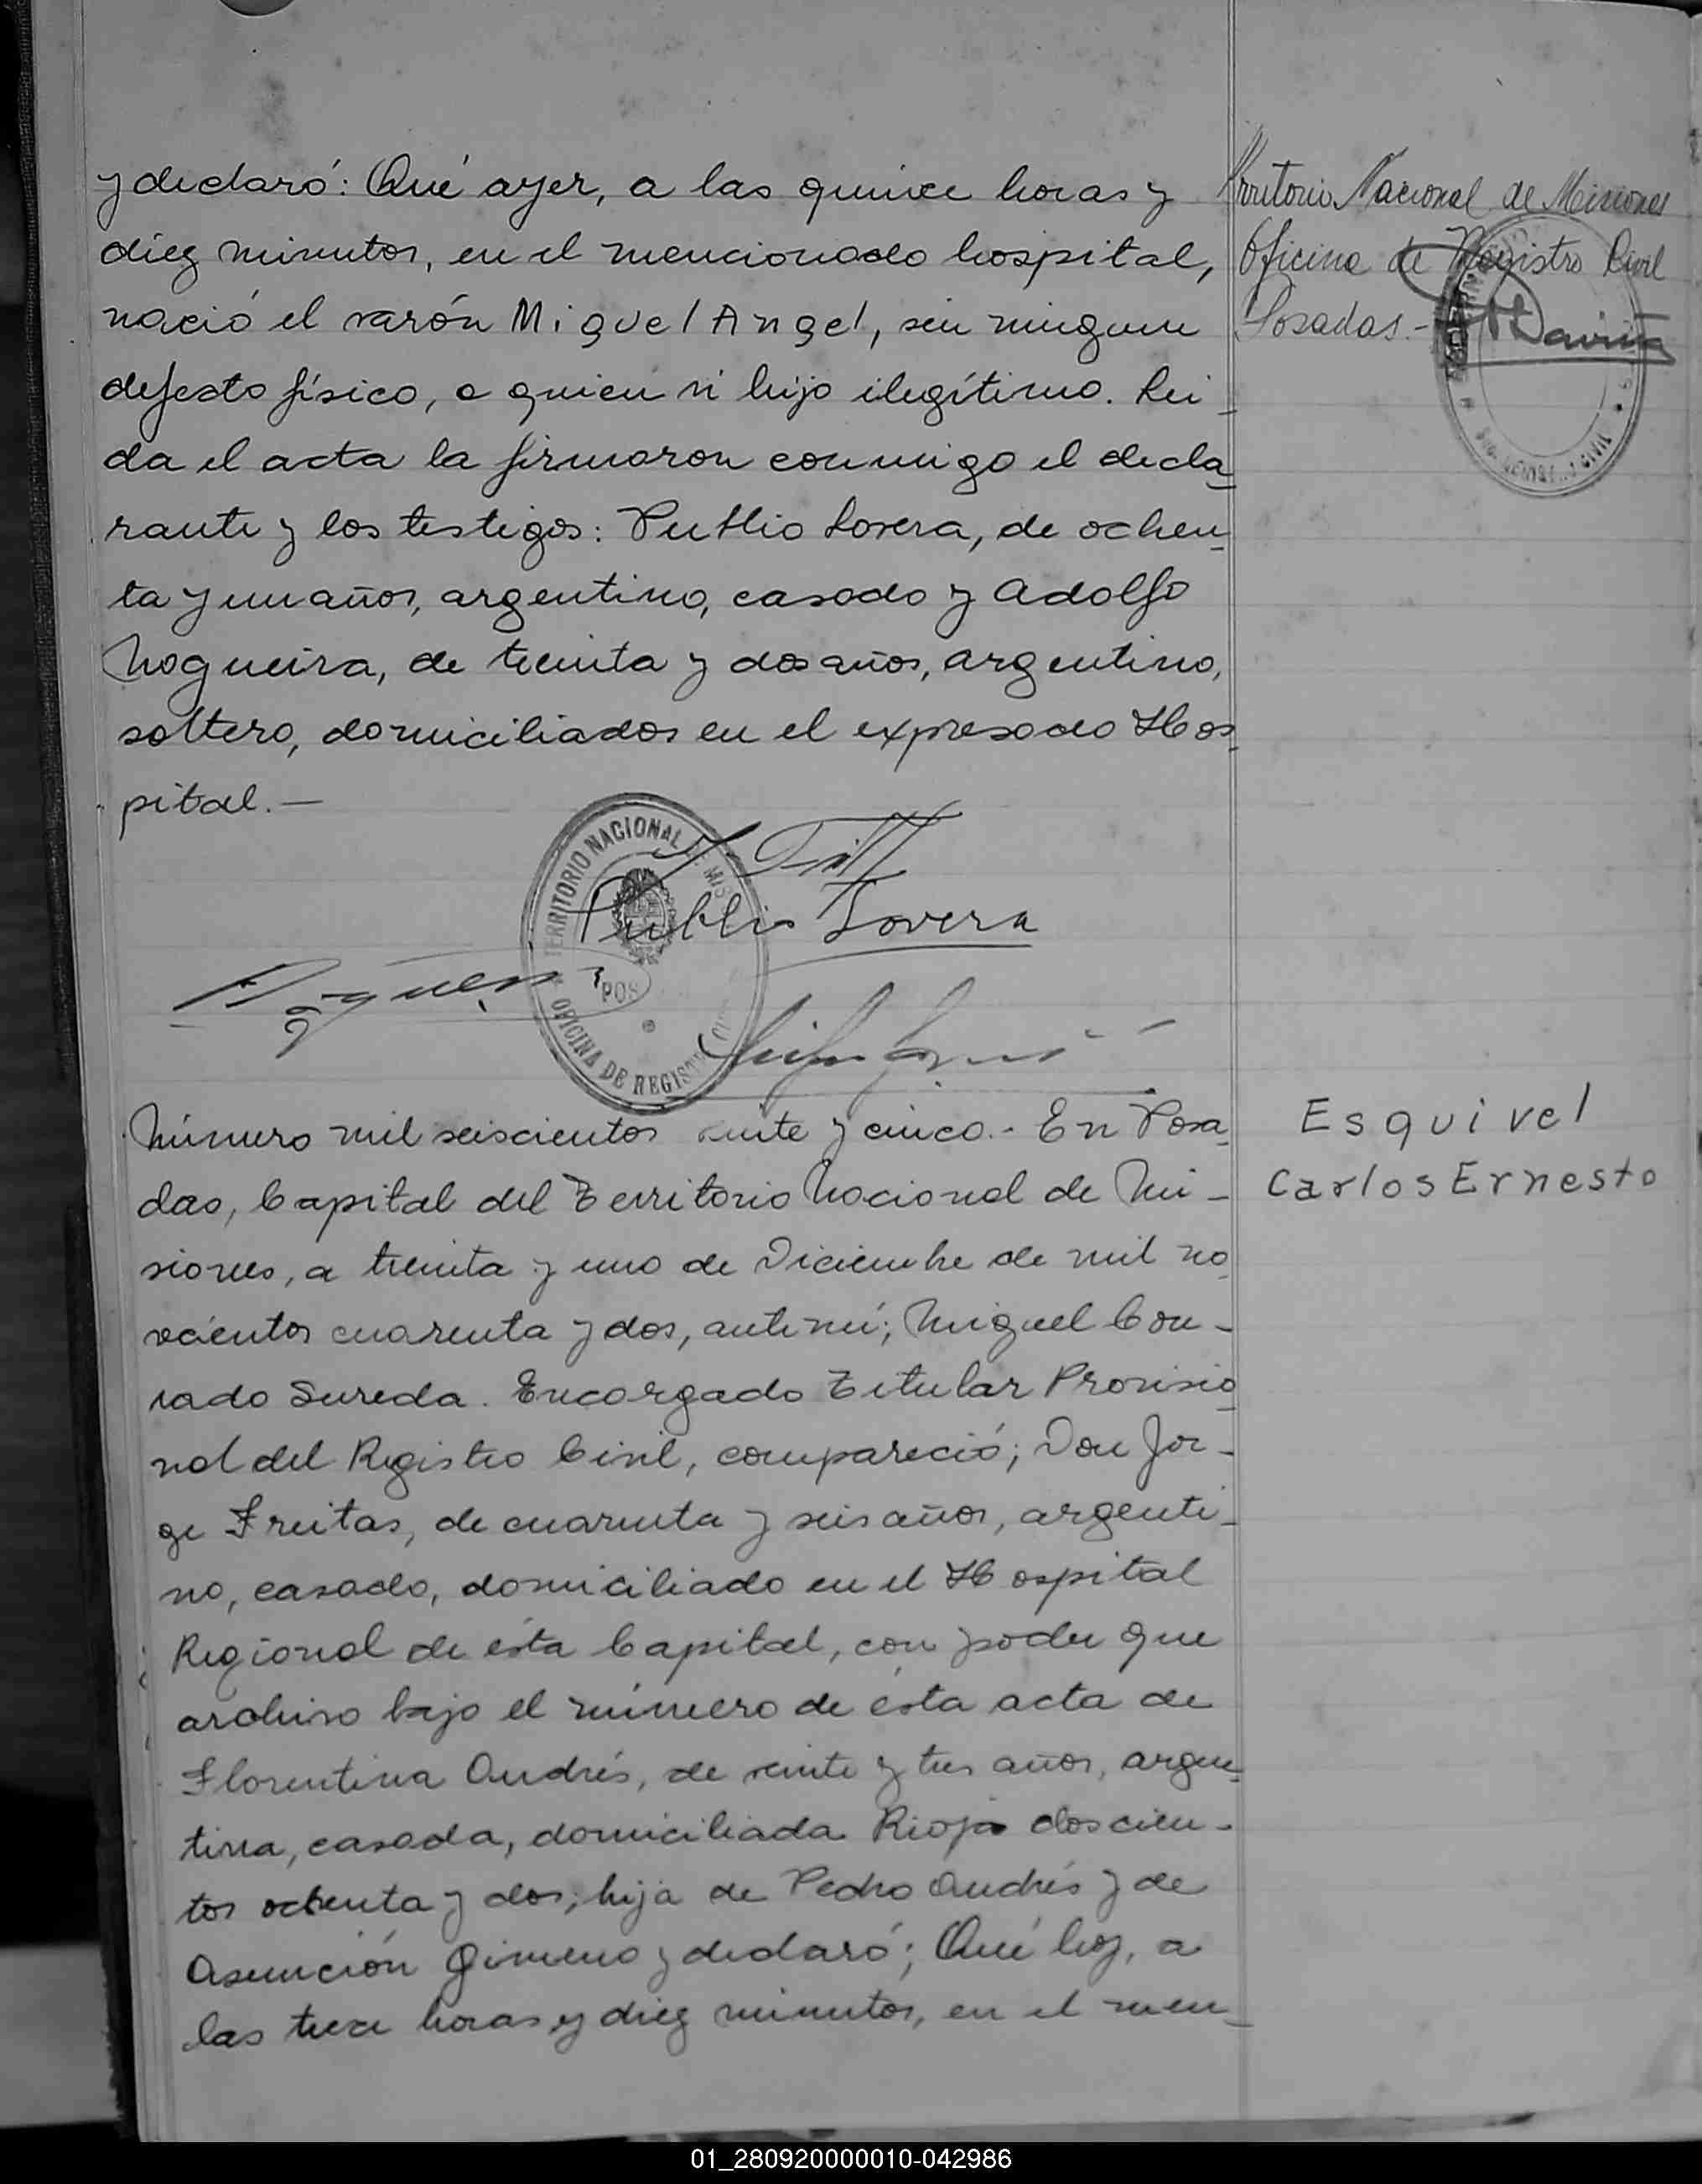 y declaró: Qué ayer, a las quince horas y
diez minutos, en el mencionado hospital,
nació el varón Miguel Angel, sin ningun
defecto físico, a quien vi hijo ilegítimo. Lei-
da el acta la firmaron conmigo el decla-
rante y los testigos: Publio Lovera, de ochen-
ta y un años, argentino, casado y Adolfo
Nogueira, de treinta y dos años, argentino,
soltero, domiciliados en el expresado Hos-
pital.—
Territorio Nacional de Misiones
Oficina de Registro Civil
Posadas.-
TERRITORIO NACIONAL DE MIS
POS
OFICINA DE REGISTRO
Publio Lovera
Número mil seiscientos veinte y cinco.- En Posa-
das, Capital del Territorio Nacional de Mi-
siones, a treinta y uno de Diciembre de mil no-
vecientos cuarenta y dos, ante mí; Miguel Con-
rado Sureda. Encargado Titular Provisio-
nal del Registro Civil, compareció; Don Jor-
ge Freitas, de cuarenta y seis años, argenti-
no, casado, domiciliado en el Hospital
Regional de ésta Capital, con poder que
archivo bajo el número de ésta acta de
Florentina Andrés, de veinte y tres años, argen-
tina, casada, domiciliada Rioja doscien-
tos ochenta y dos; hija de Pedro Andrés y de
Asunción Gimeno y declaró; Qué hoy, a
las trece horas y diez minutos, en el men-
Esquivel
Carlos Ernesto
01_280920000010-042986